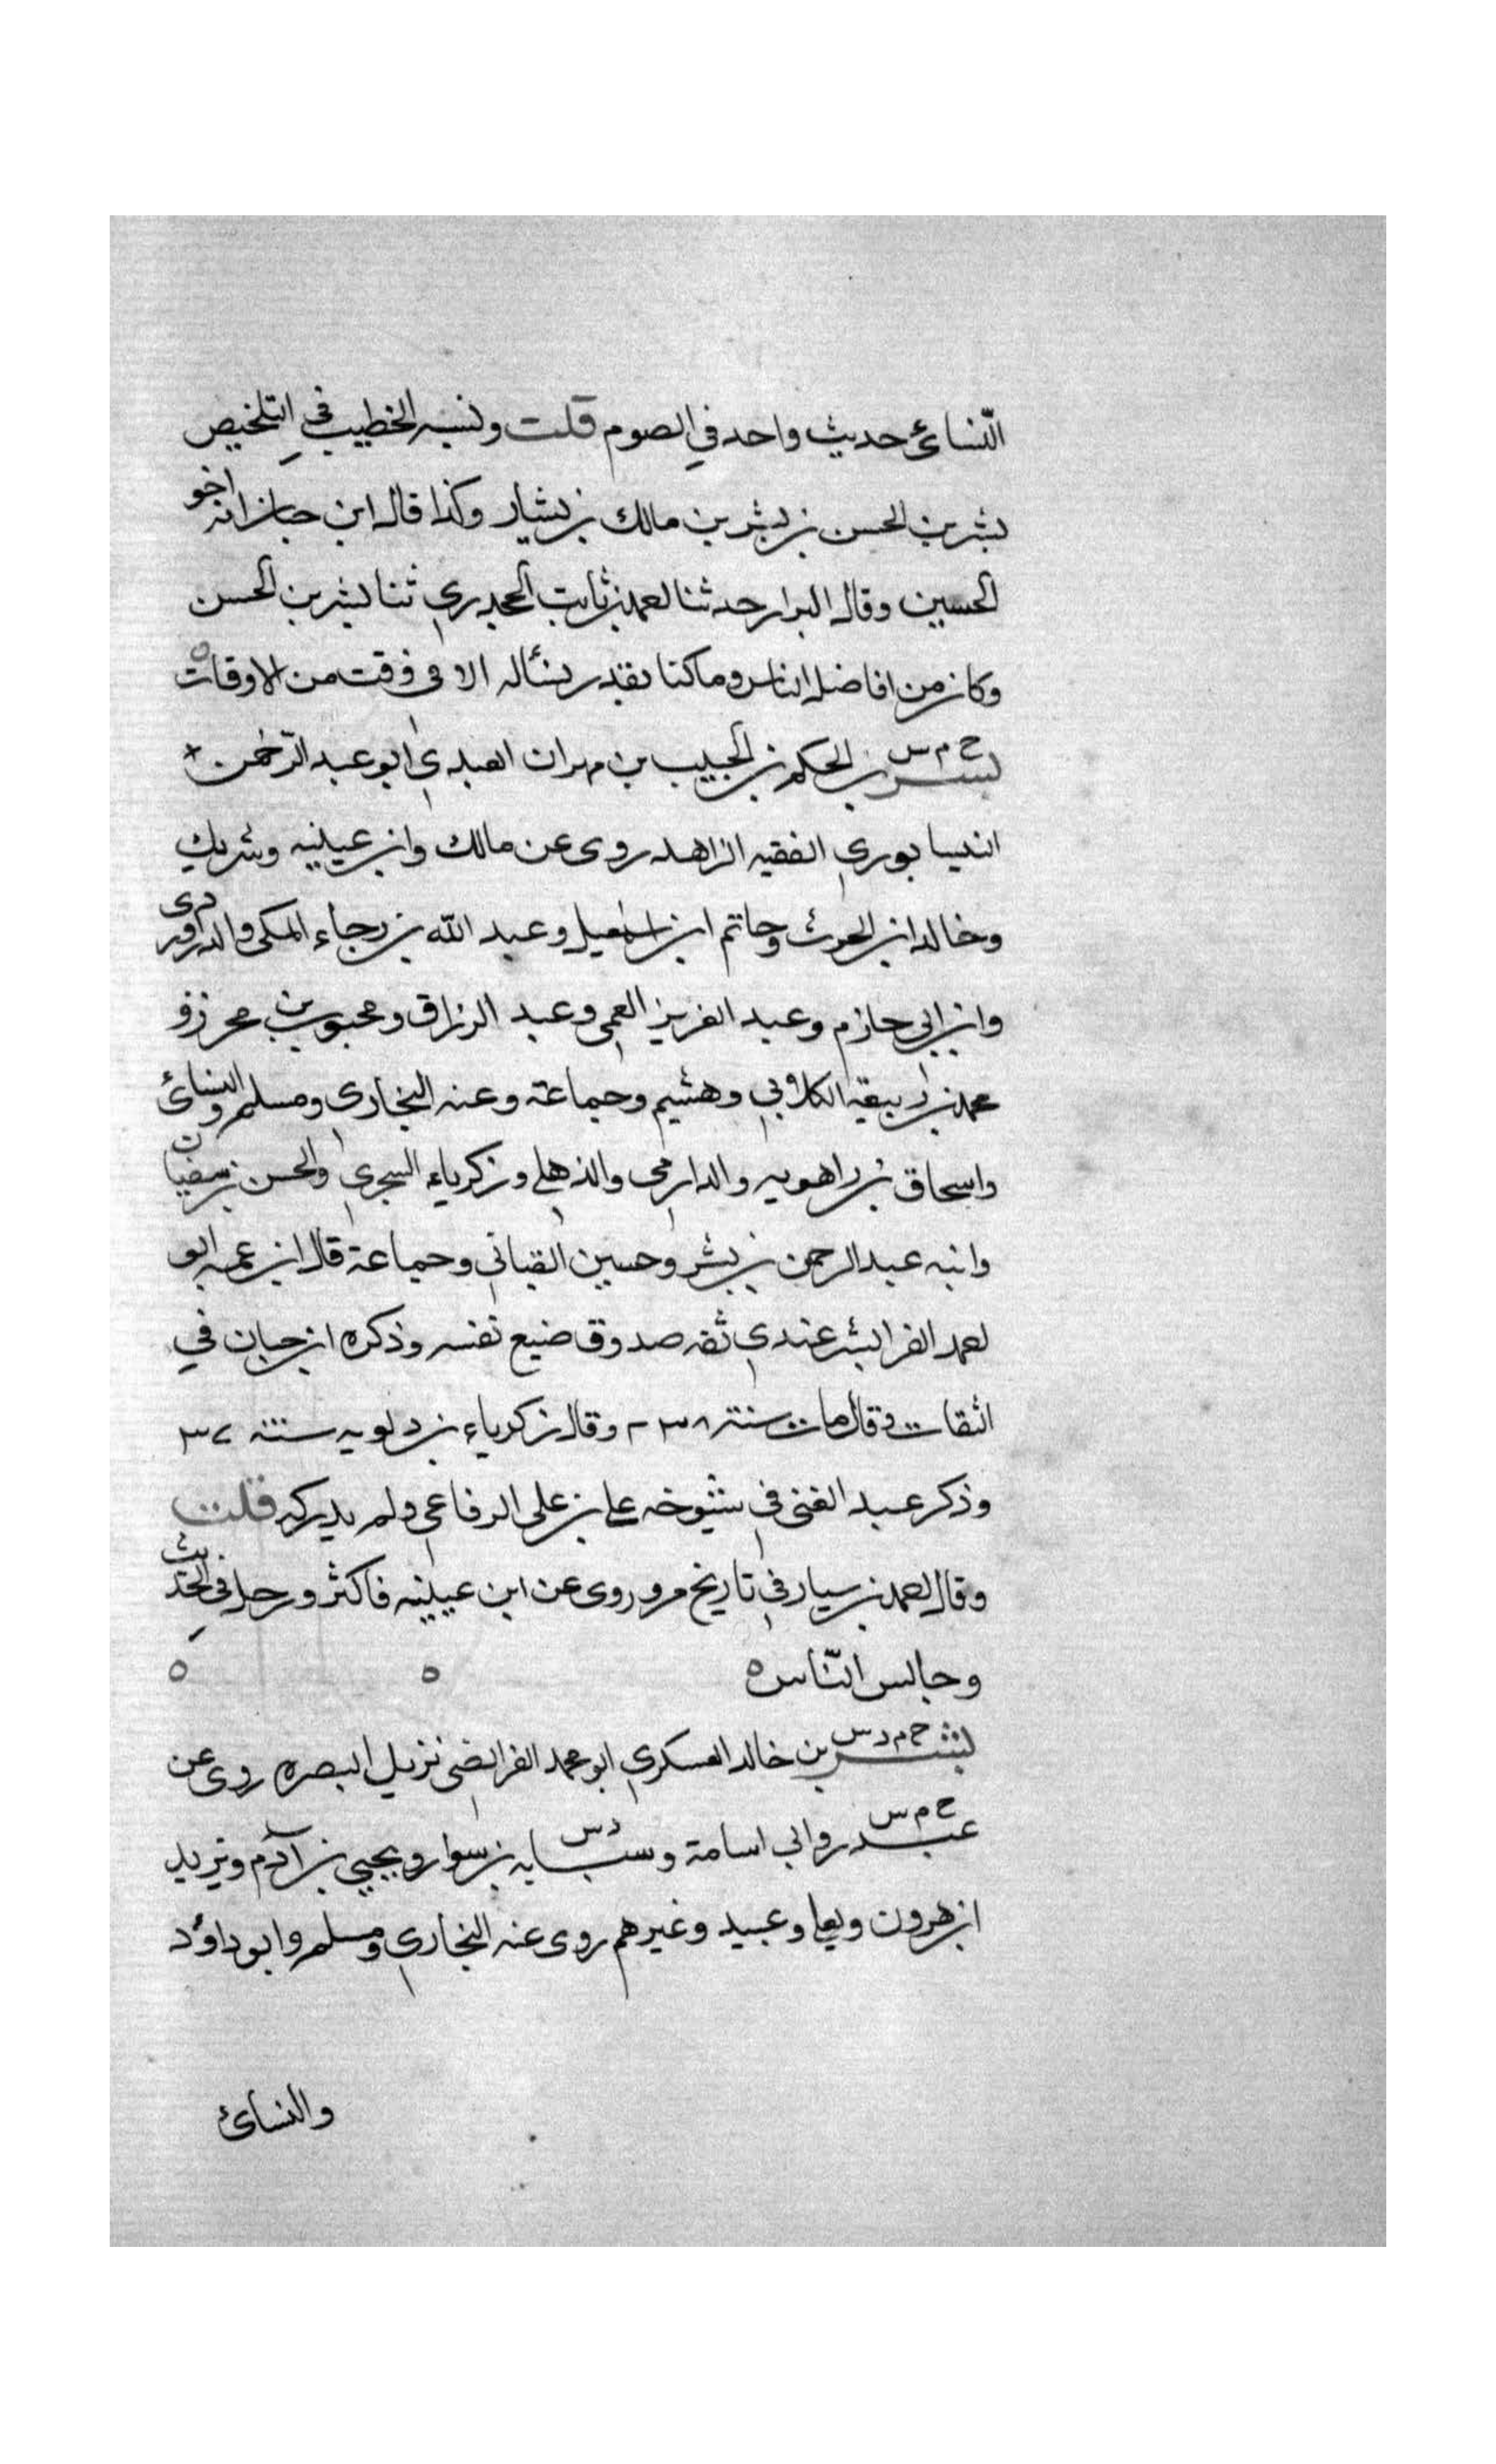 النّسائي حديث واحد في الصوم قلت ونسبه الخطيب في التلخيص
بشر بن الحسن بن بشر بن مالك بن بشار وكذا قال ابن حبان انه اخو
الحسين وقال البزار حدثنا محمد بن ثابت الجحدري ثنا بشر بن الحسن
وكان من افاضل الناس وما كنا نقدر نسأله الا في وقت من الاوقات ه
خ م س
بشر بن الحكم بن الحبيب بن مهران العبدي ابو عبد الرّحمن
النيسابوري الفقيه الزاهد روى عن مالك وابن عيينه وشريك
وخالد ابن الحرث وحاتم ابن اسمعيل وعبد الله بن رجاء المكي والدراوردي
وابن ابي حازم وعبد العزيز العمي وعبد الرزاق ومحبوب بن محرز و
محمد بن ربيعة الكلابي وهشيم وجماعة وعنه البخاري ومسلم والنسائي
واسحاق بن راهويه والدارمي والذهلي وزكرياء السجزي والحسن بن سفيان
وابنه عبد الرحمن بن بشر وحسين القباني وجماعة قال ابن عمه ابو
احمد الفرا بشر عندي ثقه صدوق ضيع نفسه وذكره ابن حبان في
الثقات وقال مات سنة ٢٣٨ وقال زكرياء بن دلويه سنة ٣٧
وذكر عبد الغني في شيوخه علي بن علي الرفاعي ولم يدركه قلت
وقال احمد بن سيار في تاريخ مرو روى عن ابن عيينه فاكثر ورحل في الحديث
وجالس النّاس ه ه ه
خ م د س
بشر بن خالد العسكري ابو محمد الفرائضي نزيل البصره روى عن
خ م س د س
غندر وابي اسامة وشبابه بن سوار ويحيى بن آدم ويزيد
ابن هرون ويعلى وعبيد وغيرهم روى عنه البخاري ومسلم وابو داؤد
والنسائي